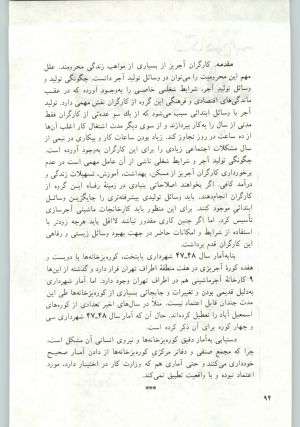 مقدمه. کارگران آجرپز از بسیاری از مواهب زندگی محرومند. علل
مهم این محرومیت را می‌توان در وسائل تولید آجر دانست. چگونگی تولید و
وسائل آجرپزی، شرایط شغلی خاصی را بوجود آورده که در عقب
ماندگی‌های اقتصادی و فرهنگی این گروه از کارگران نقش مهمی دارد. تولید
آجر با وسائل ابتدائی سبب می‌شود که از یک سو عده‌ئی از کارگران فقط
مدتی از سال را به‌کار بپردازند و از سوی دیگر مدت اشتغال کار اغلب آن‌ها
از ده ساعت در روز تجاوز کند. زیاد بودن ساعات کار و بیکاری در نیمی از
سال مشکلات اجتماعی زیادی را برای این کارگران به‌وجود آورده است.
چگونگی تولید آجر و شرایط شغلی ناشی از آن عامل مهمی است در عدم
برخورداری کارگران آجرپز از مسکن، بهداشت، آموزش، تسهیلات زندگی و
درآمد کافی. اگر بخواهند اصلاحاتی بنیادی در زمینهٔ رفاه این گروه از
کارگران انجام‌دهند، باید وسائل تولیدی پیشرفته‌تری را جایگزین وسائل
ابتدائی موجود کنند. برای این منظور باید کارخانجات ماشینی آجرسازی
تأسیس کرد. اما اگر چنین کاری مقدور نباشد لااقل باید هرچه زودتر با
استفاده از شرایط و امکانات حاضر در جهت بهبود وسائل زیستی و رفاهی
این کارگران قدم برداشت.
بنابه‌آمار سال ۴۸ـ۴۷ شهرداری پایتخت، کوره‌پزخانه‌ها با دویست و
هفده کورهٔ آجرپزی در هفت منطقهٔ اطراف تهران قرار دارد و گذشته از این‌ها
۹ کارخانهٔ آجرماشینی هم در اطراف تهران وجود دارد. اما آمار شهرداری
به‌دلیل قدیمی بودن و تغییرات و جابجائی بسیاری از کوره‌پزخانه‌ها طی این
مدت چندان قابل اعتماد نیست. مثلا در سال‌های اخیر تعدادی از کوره‌های
اسمعیل آباد را تعطیل کرده‌اند، حال آن که آمار سال ۴۸ـ۴۷ شهرداری سی
و چهار کوره برای آن ذکر کرده است.
دستیابی به‌آمار دقیق کوره‌پزخانه‌ها و نیروی انسانی آن مشکل است،
چرا که مجمع صنفی و دفاتر مرکزی کوره‌پزخانه‌ها از دادن آمار صحیح
خودداری می‌کنند و حتی آماری هم که وزارت کار در اختیار دارد، مورد
اعتماد نبوده و با واقعیت تطبیق نمی‌کند.
***
۹۴